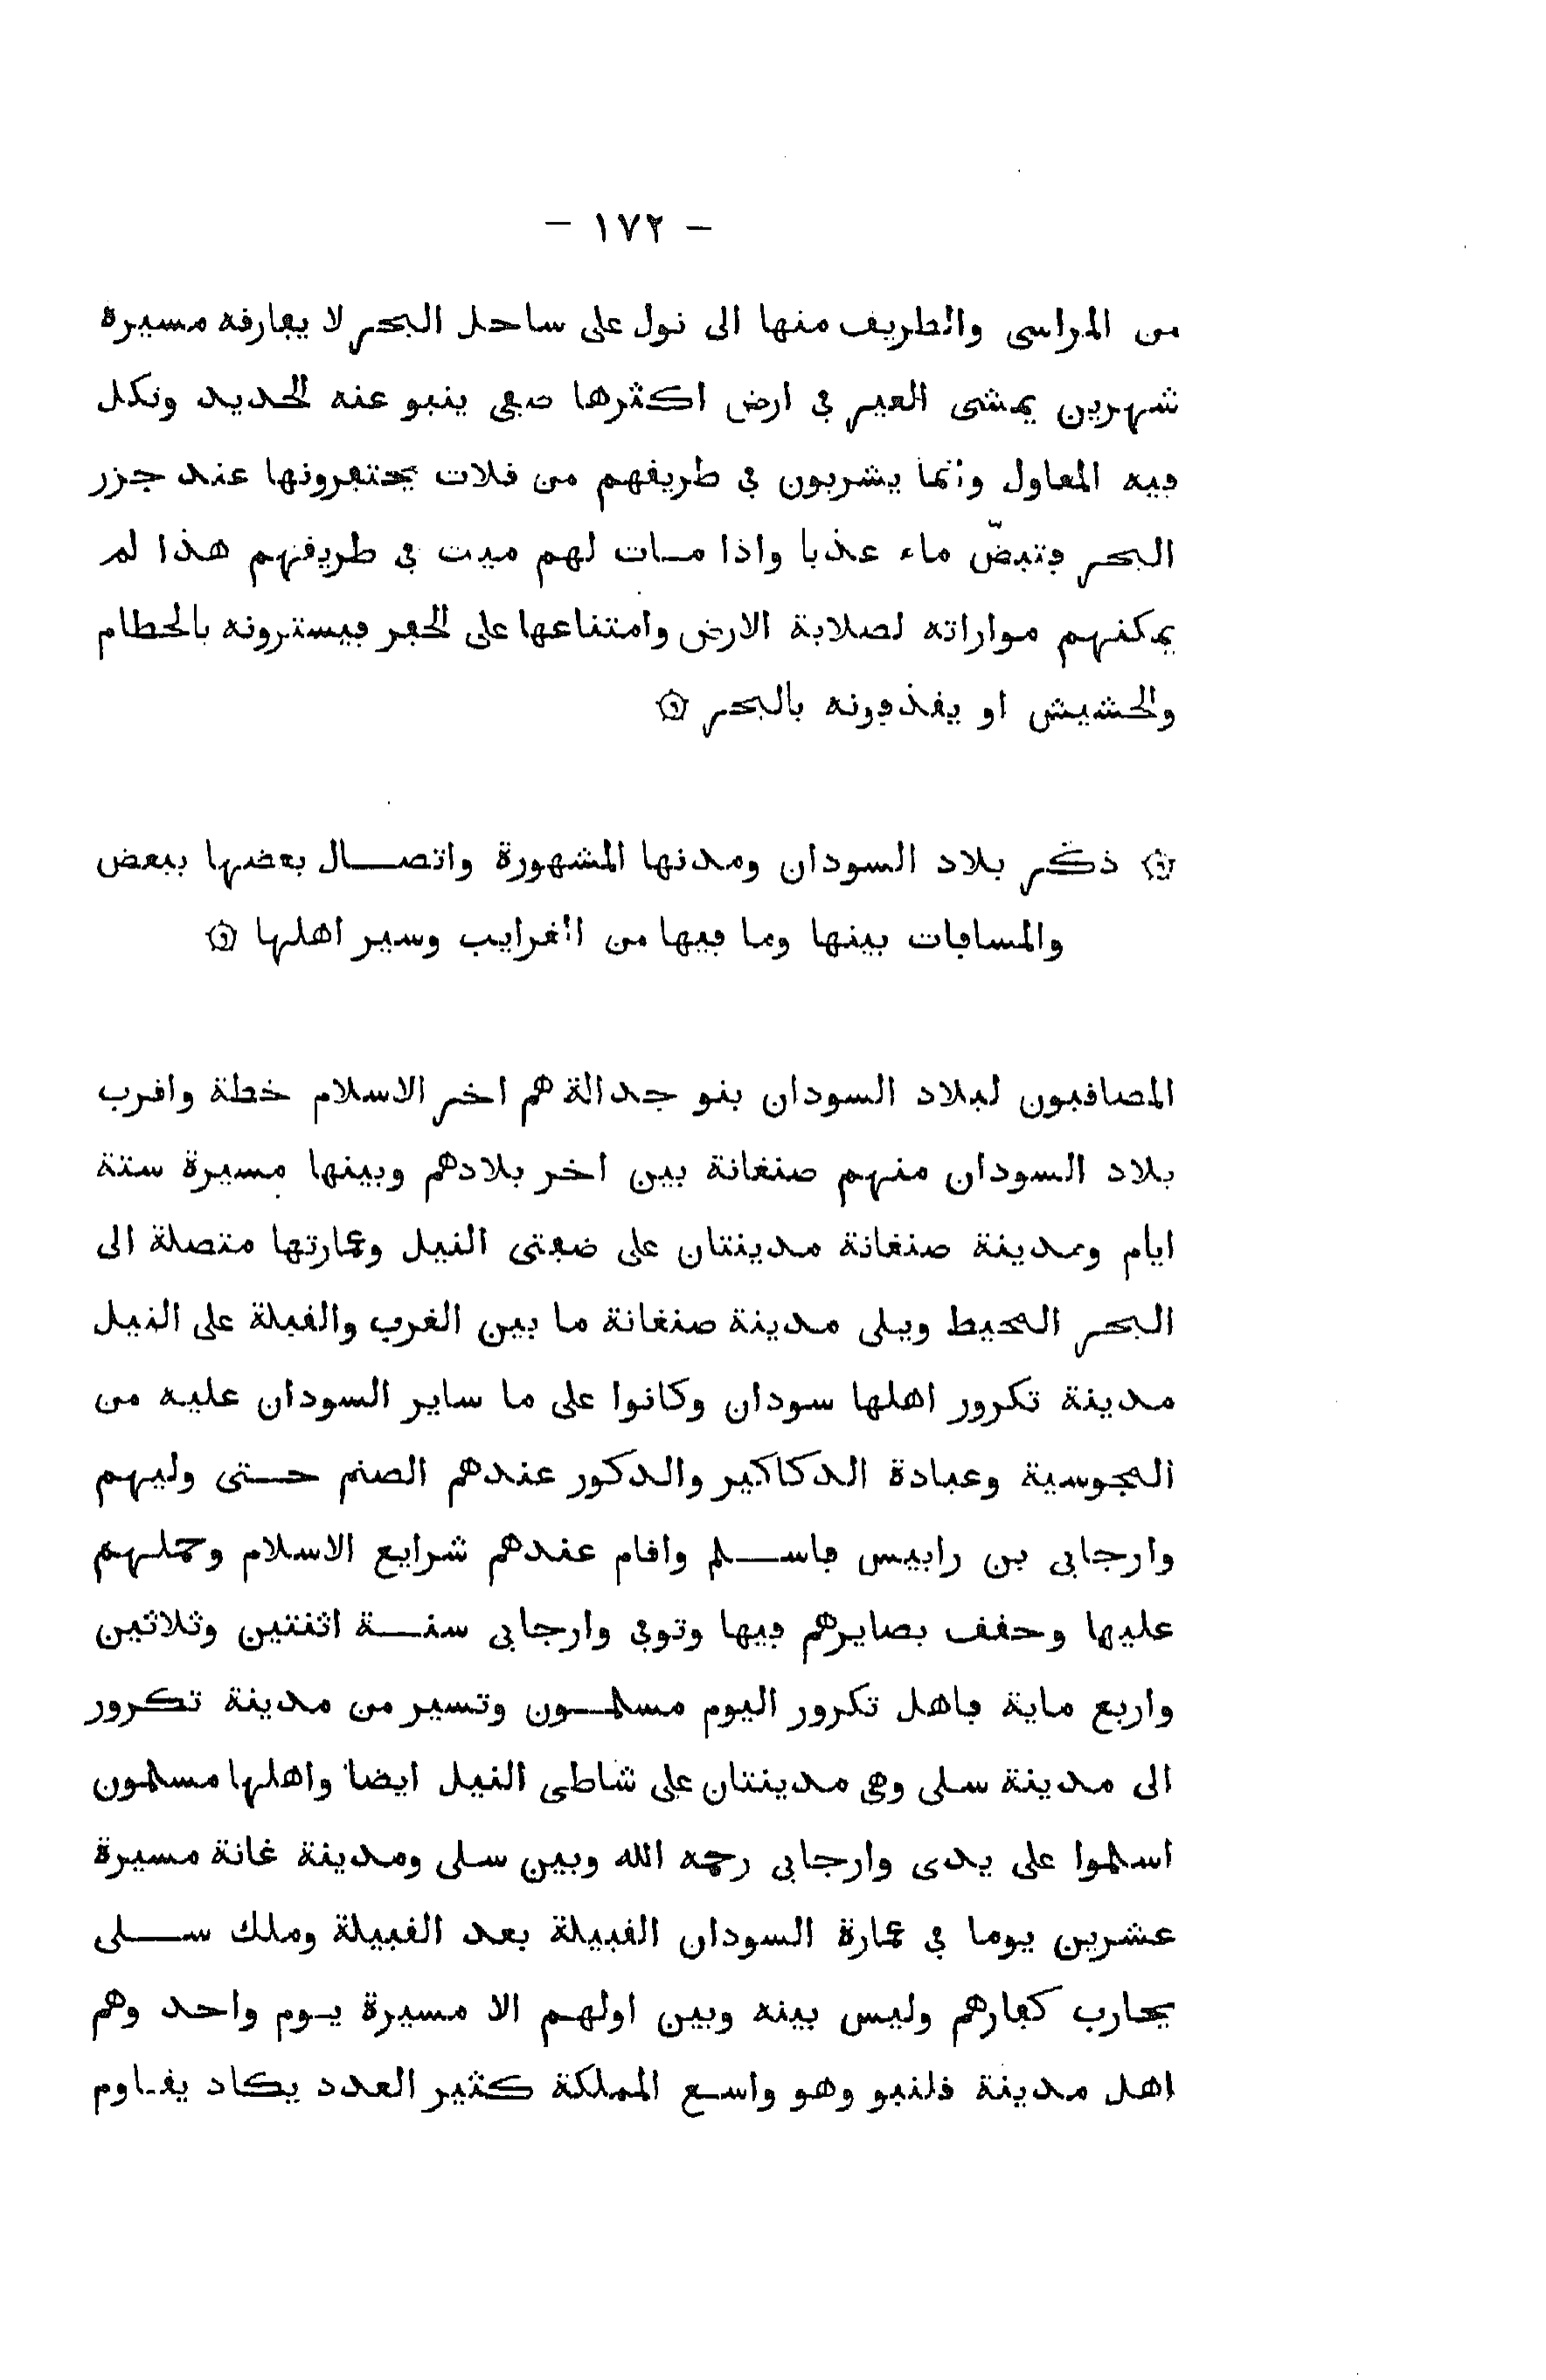 - ١٧٢ -
من المراسى والطريق منها الى نول على ساحل البحر لا يفارقه مسيرة
شهرين يمشى العير فى ارض اكثرها صفى ينبو عنه الحديد وتكل
فيه المعاول وانّما يشربون فى طريقهم من قلات يحتفرونها عند جزر
البحر فتبضّ ماء عذبا واذا مات لهم ميت فى طريقهم هذا لم
يمكنهم مواراته لصلابة الارض وامتناعها على الحفر فيسترونه بالحطام
والحشيش او يقذفونه بالبحر ۞
۞ ذكر بلاد السودان ومدنها المشهورة واتصال بعضها ببعض
والمسافات بينها وما فيها من الغرايب وسير اهلها ۞
المصاقبون لبلاد السودان بنو جدالة هم اخر الاسلام خطة واقرب
بلاد السودان منهم صنغانة بين اخر بلادهم وبينها مسيرة ستة
ايام ومدينة صنغانة مدينتان على ضفتى النيل وعمارتها متصلة الى
البحر المحيط ويلى مدينة صنغانة ما بين الغرب والقبلة على النيل
مدينة تكرور اهلها سودان وكانوا على ما ساير السودان عليه من
المجوسية وعبادة الدكاكير والدكور عندهم الصنم حتى وليهم
وارجابى بن رابيس فاسلم واقام عندهم شرايع الاسلام وحملهم
عليها وحقق بصايرهم فيها وتوفى وارجابى سنة اثنتين وثلاثين
واربع ماية فاهل تكرور اليوم مسلمون وتسير من مدينة تكرور
الى مدينة سلى وهى مدينتان على شاطى النيل ايضا واهلها مسلمون
اسلموا على يدى وارجابى رحمه الله وبين سلى ومدينة غانة مسيرة
عشرين يوما فى عمارة السودان القبيلة بعد القبيلة وملك سلى
يحارب كفارهم وليس بينه وبين اولهم الا مسيرة يوم واحد وهم
اهل مدينة قلنبو وهو واسع المملكة كثير العدد يكاد يقاوم